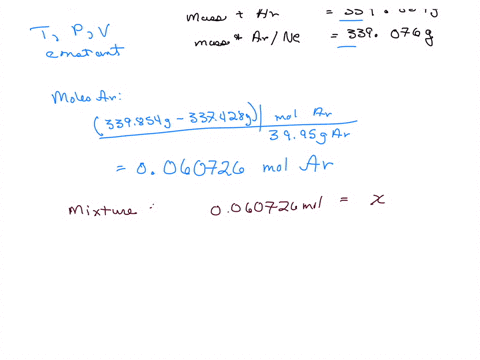 T, P, V
constant
mass + Ar =
mass + Ar/Ne = 339.076g
Moles Ar:
(339.854g - 337.428g) | mol Ar
39.95g Ar
= 0.060726 mol Ar
Mixture : 0.060726 mol = x